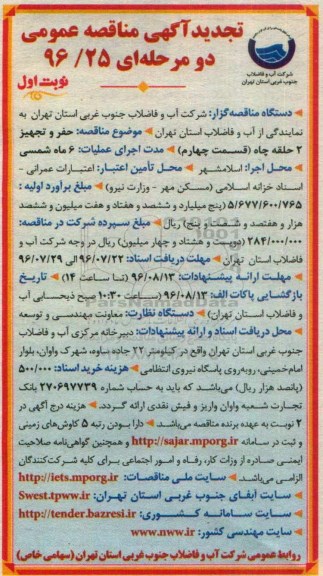 تجدیدآگهی مناقصه عمومی
دو مرحله‌ای ۲۵/ ۹۶
نوبت اول
شرکت آب و فاضلاب
جنوب غربی استان تهران
دستگاه مناقصه‌گزار: شرکت آب و فاضلاب جنوب غربی استان تهران به
نمایندگی از آب و فاضلاب استان تهران موضوع مناقصه: حفر و تجهیز
۲ حلقه چاه (قسمت چهارم) مدت اجرای عملیات: ۶ ماه شمسی
محل اجرا: اسلامشهر محل تأمین اعتبار: اعتبارات عمرانی -
اسناد خزانه اسلامی (مسکن مهر - وزارت نیرو) مبلغ برآورد اولیه :
۵/۶۷۷/۶۰۰/۷۶۵ (پنج میلیارد و ششصد و هفتاد و هفت میلیون و ششصد
هزار و هفتصد و شصت و پنج) ریال مبلغ سپرده شرکت در مناقصه:
۲۸۴/۰۰۰/۰۰۰ (دویست و هشتاد و چهار میلیون) ریال در وجه شرکت آب و
فاضلاب استان تهران مهلت دریافت اسناد: ۹۶/۰۷/۲۲ الی ۹۶/۰۷/۲۹
مهلت ارائه پیشنهادات: ۹۶/۰۸/۱۳ (تا ساعت ۱۴) تاریخ
بازگشایی پاکات الف: ۹۶/۰۸/۱۴ (ساعت ۱۰:۳۰ صبح ذیحسابی آب
و فاضلاب استان تهران) دستگاه نظارت: معاونت مهندسی و توسعه
محل دریافت اسناد و ارائه پیشنهادات: دبیرخانه مرکزی آب و فاضلاب
جنوب غربی استان تهران واقع در کیلومتر ۲۲ جاده ساوه، شهرک واوان، بلوار
امام‌خمینی، روبه‌روی پاسگاه نیروی انتظامی هزینه خرید اسناد: ۵۰۰/۰۰۰
(پانصد هزار ریال) می‌باشد که باید به حساب شماره ۲۷۰۶۹۷۷۳۹ بانک
تجارت شعبه واوان واریز و فیش نقدی ارائه گردد. هزینه درج آگهی در
۲ نوبت به عهده برنده مناقصه می‌باشد. دارا بودن رتبه ۵ کاوش‌های زمینی
و ثبت در سامانه http://sajar.mporg.ir و همچنین گواهی‌نامه صلاحیت
ایمنی صادره از وزارت کار، رفاه و امور اجتماعی برای کلیه شرکت‌کنندگان
الزامی می‌باشد. سایت ملی مناقصات: http://iets.mporg.ir
سایت آبفای جنوب غربی استان تهران: Swest.tpww.ir
سایت سامانه کشوری: http://tender.bazresi.ir
سایت مهندسی کشور: www.nww.ir
روابط عمومی شرکت آب و فاضلاب جنوب غربی استان تهران (سهامی خاص)